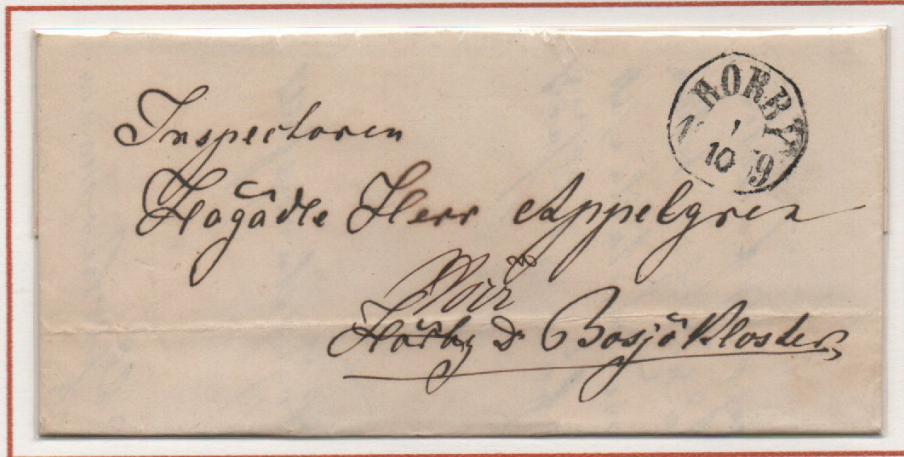 1
10
Inspectoren
Högädle Herr Appelgren
Hörby & Bosjökloster